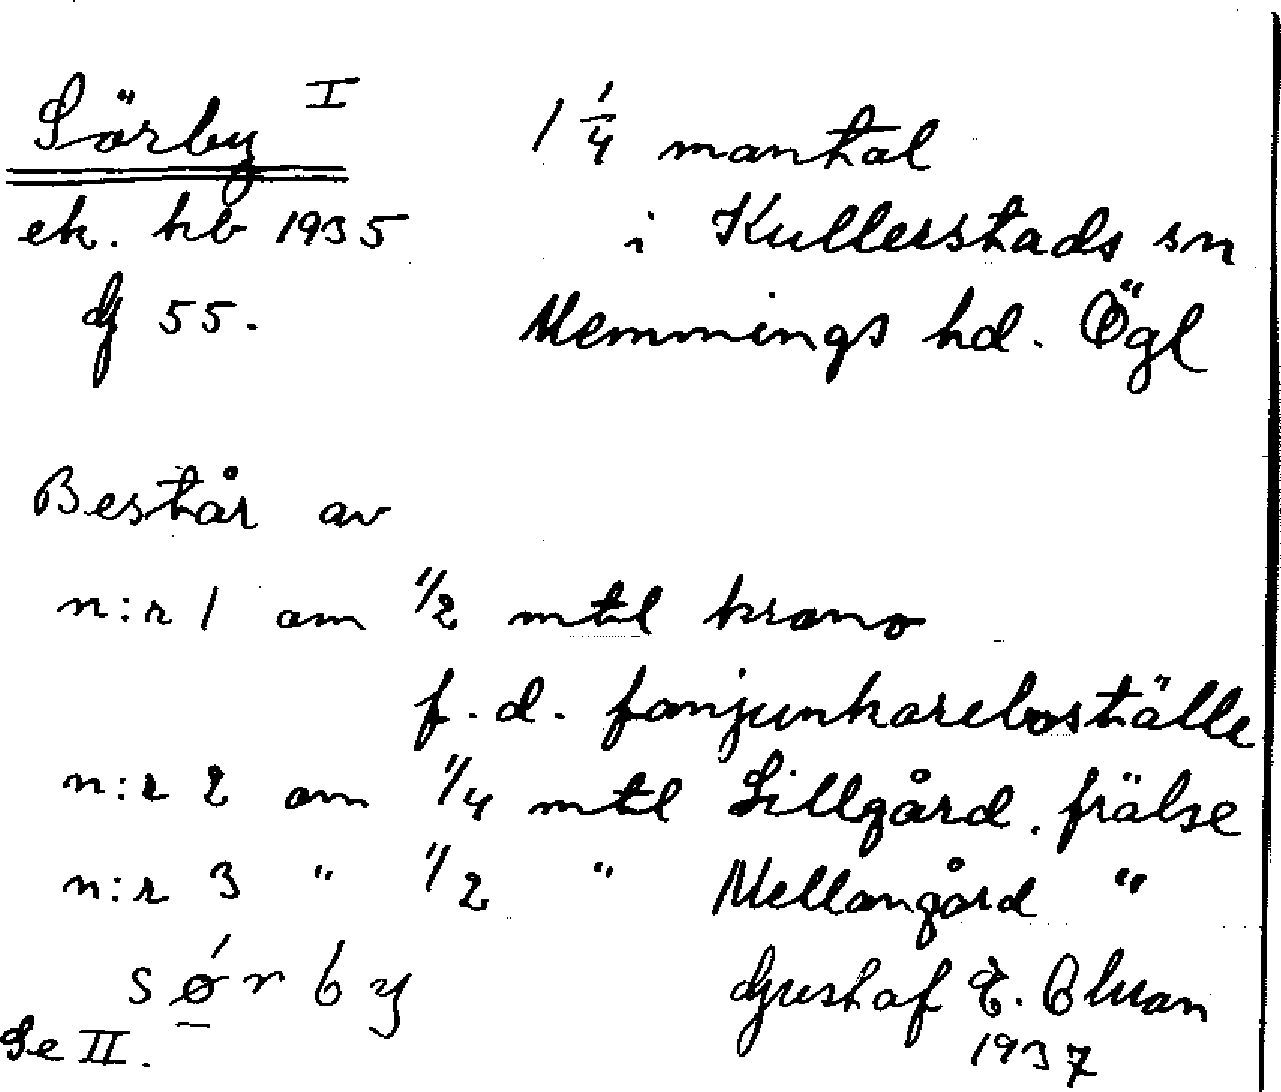 Sörby I 1 1/4 mantal
ek. kb 1935 i Kullerstads sn
G 55. Memmings hd. Ögl
Består av
n:r 1 om 1/2 mtl krono
f.d. fanjunkareboställe
n:r 2 om 1/4 mtl Lillgård. frälse
n:r 3 " 1/2 " Mellangård "
sǿrby Gustaf E.
Se II. 1937